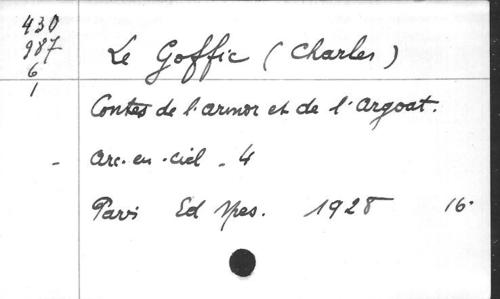 430
987
6
1
Le Goffic (Charles)
Contes de l'armor et de l'argoat.
- arc-en-ciel - 4
Paris Ed 1928 16°